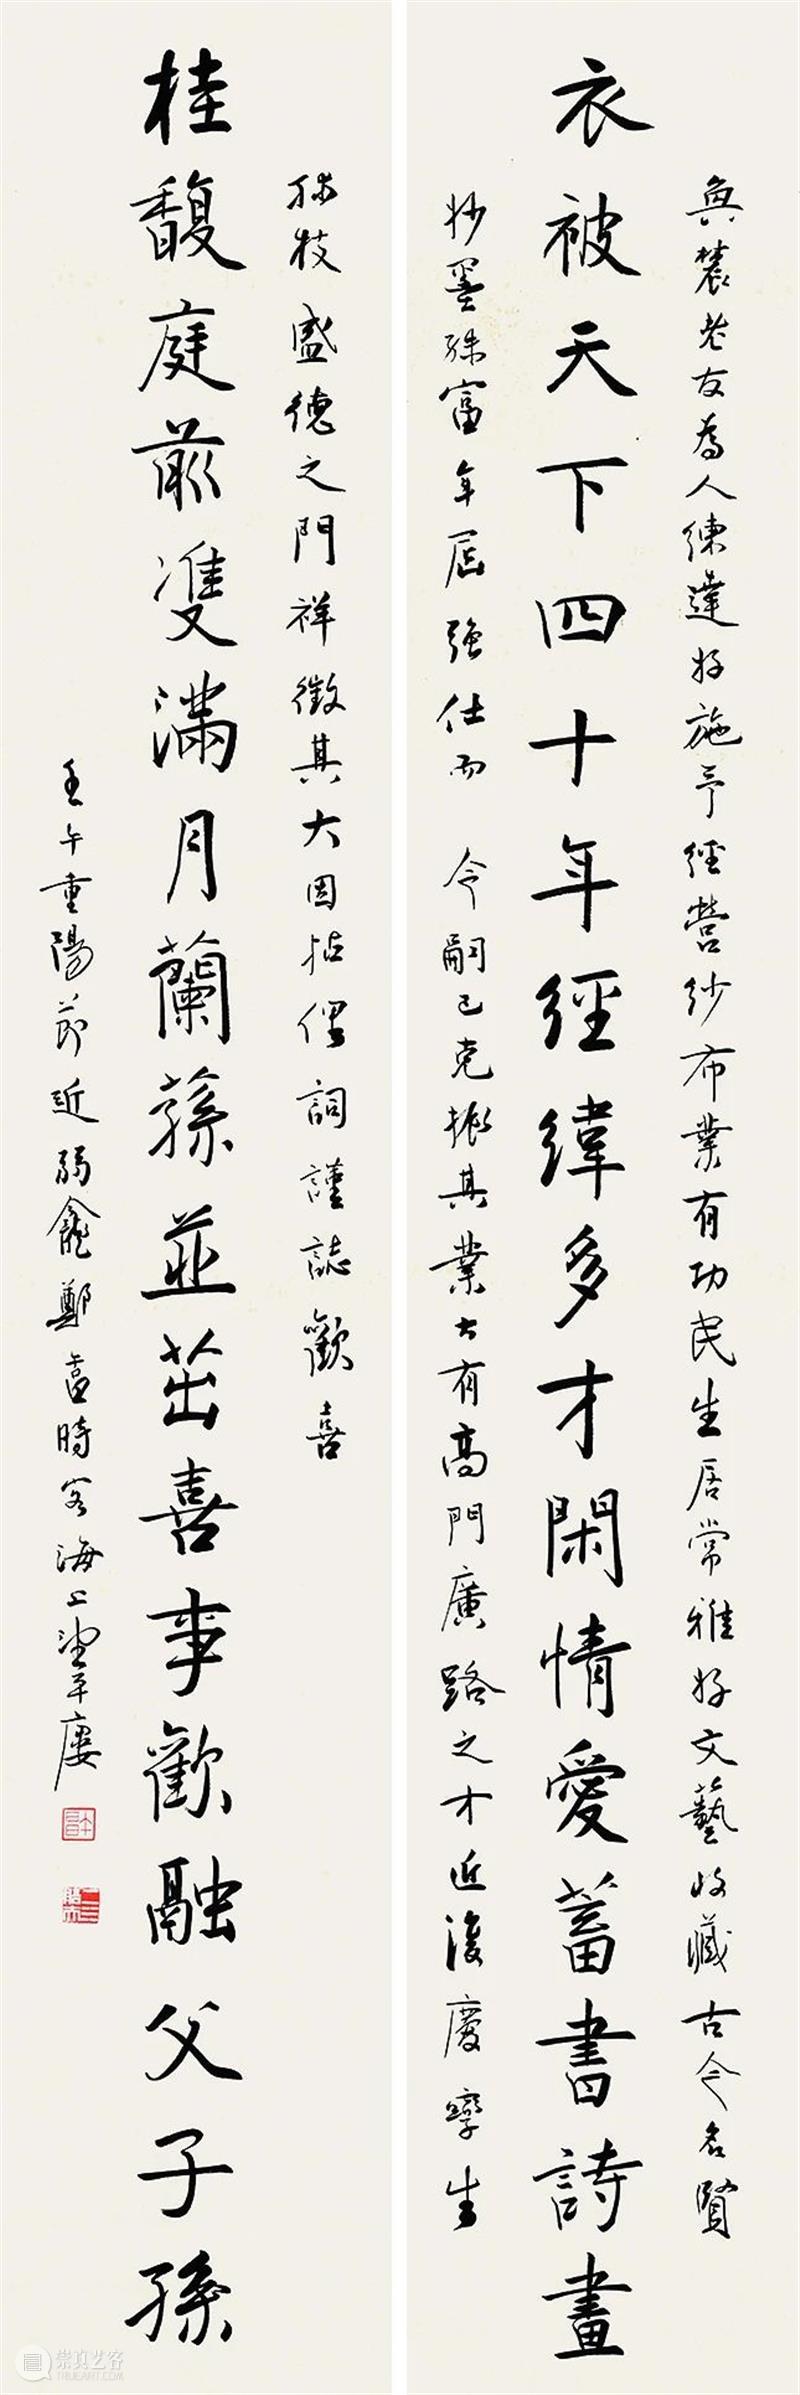 農老友為人練達好施予經營紗布業有功民生居常雅好文藝收藏古今名賢
衣被天下四十年經緯多才閑情愛蓄書詩畫
妙墨殊富年屆強仕而 令嗣已克振其業大有高門廣路之才近復慶孿生
孫枝盛德之門祥徵其大因拈俚詞謹誌歡喜
桂馥庭前雙滿月蘭蓀並茁喜事歡融父子孫
壬午重陽節近弱龕鄭時客海上望平廔
崇真艺客
TRUEART.COM